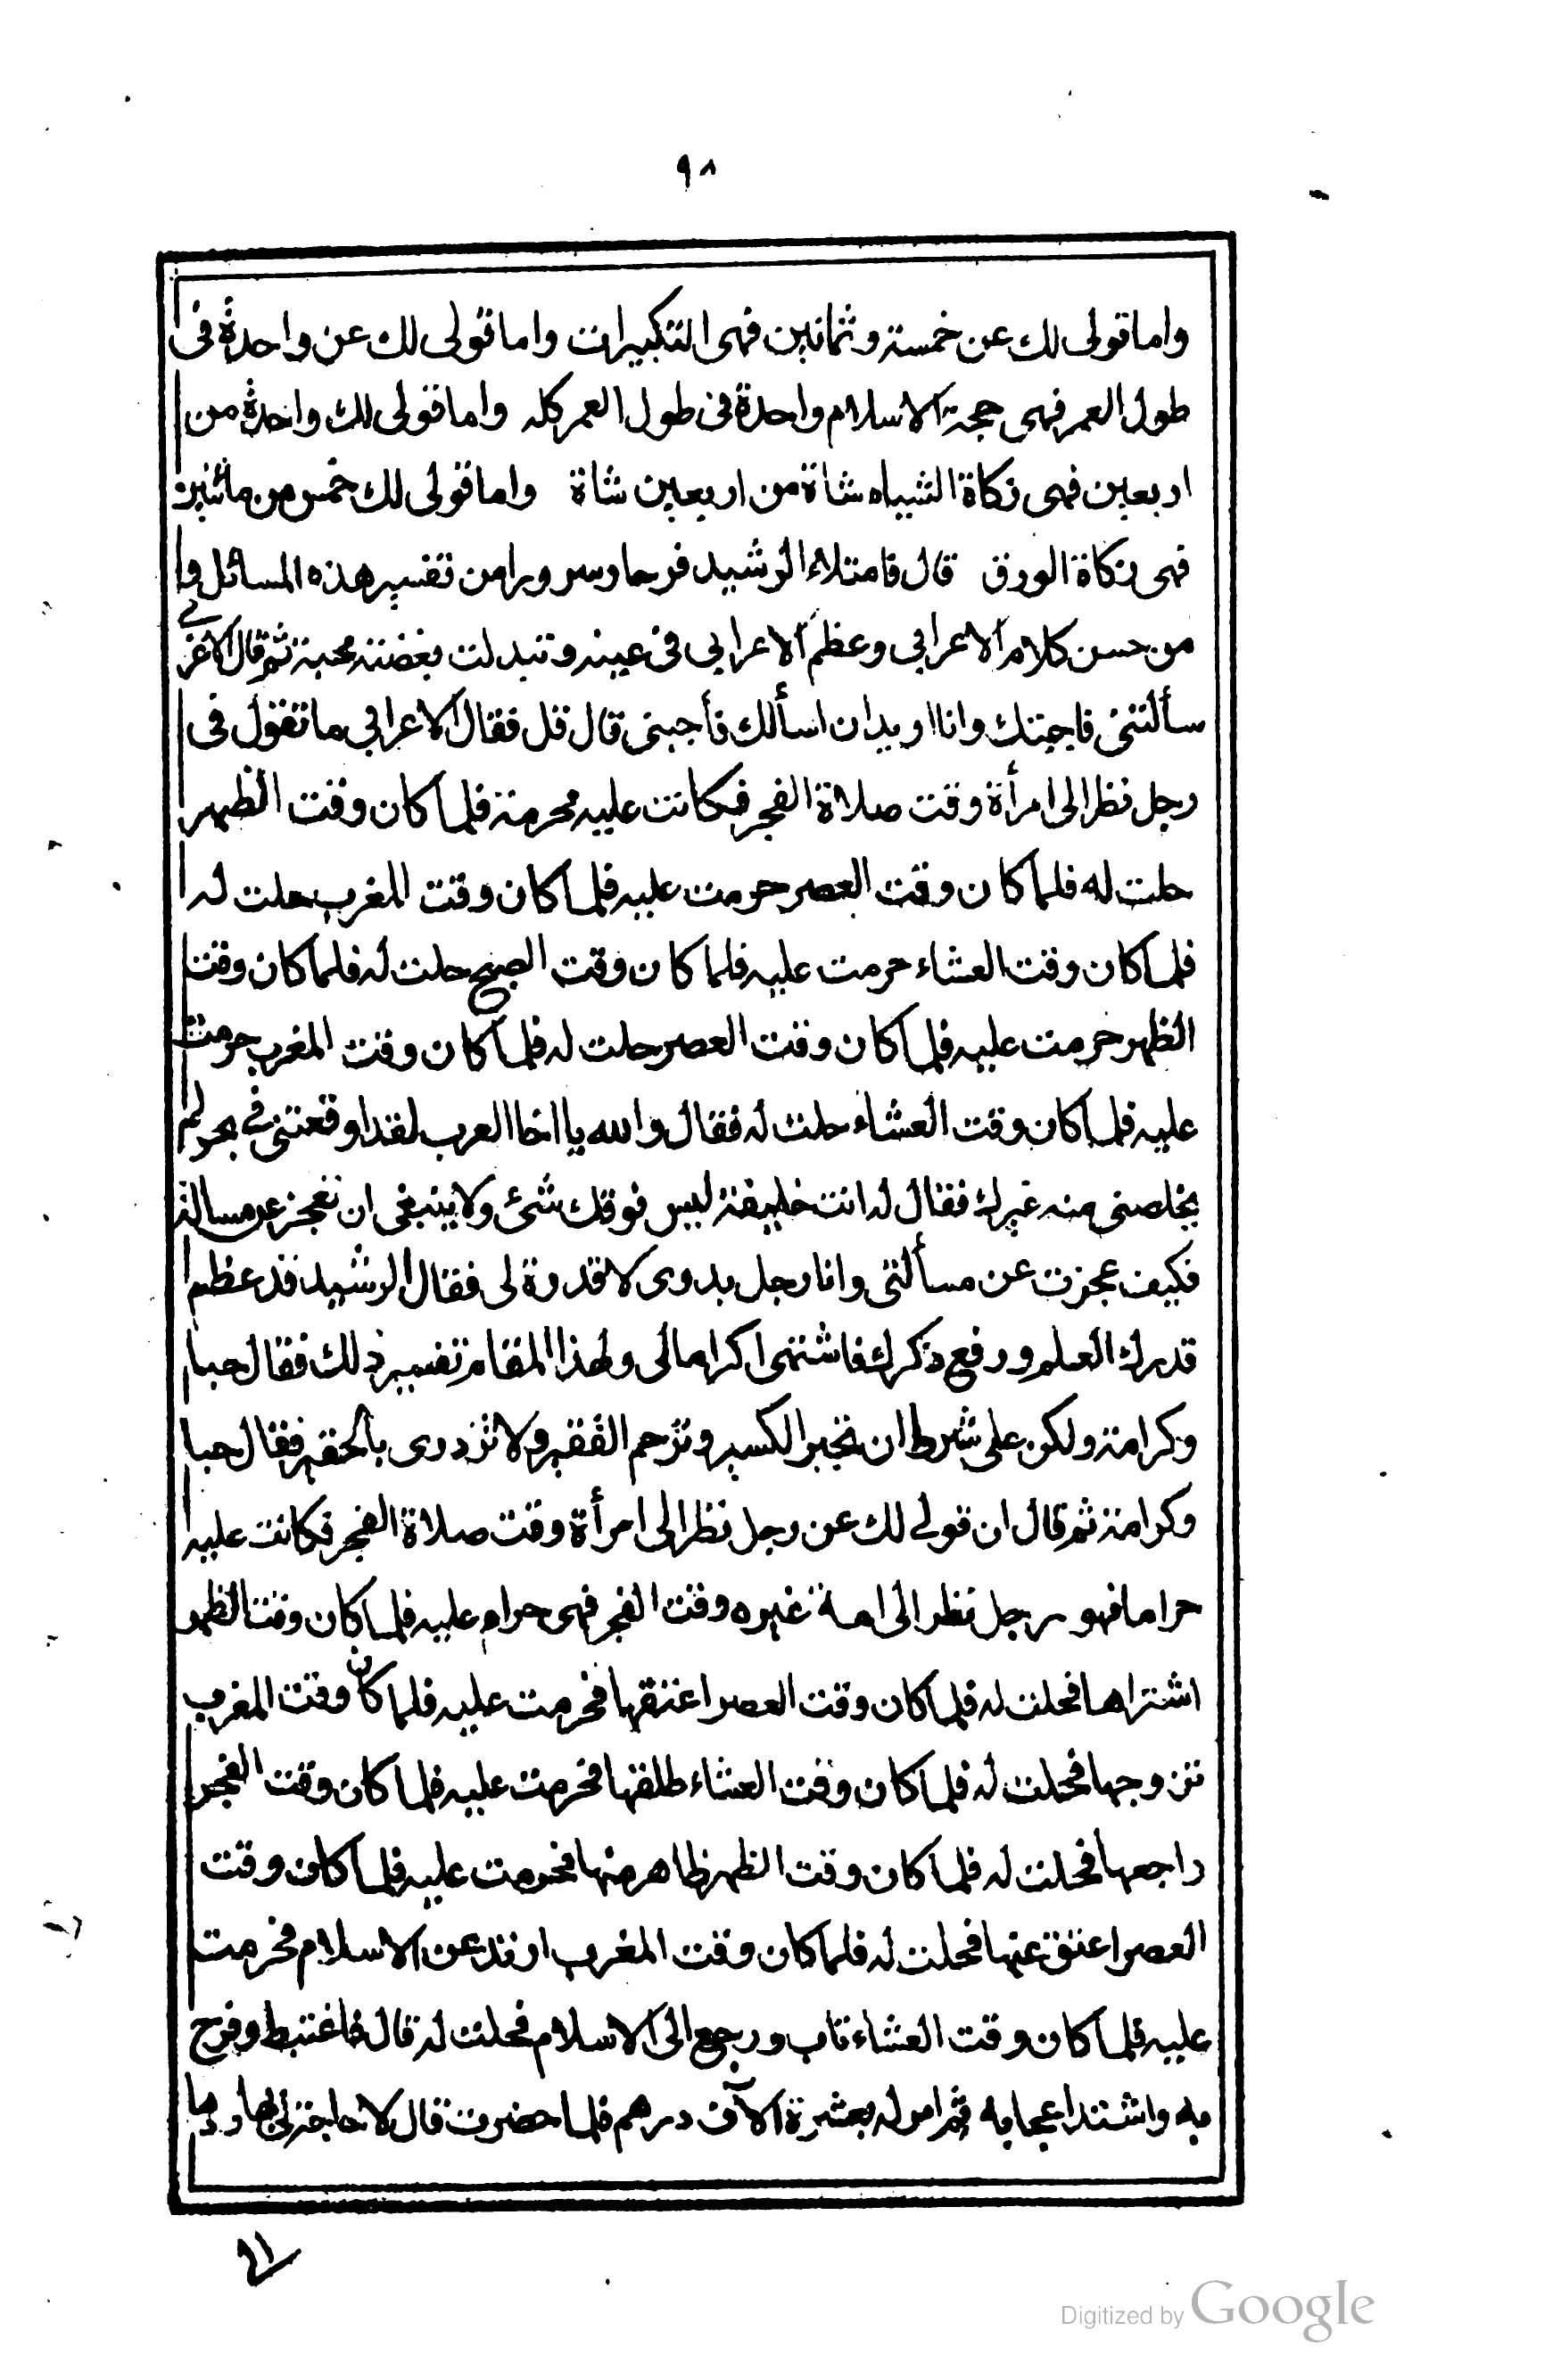 ٩٨
واما قولى لك عن خمسة وثمانين فهى التكبيرات واما قولى لك عن واحدة فى
طول العمر فهى حجة الاسلام واحدة فى طول العمر كله واما قولى لك واحدة من
اربعين فهى زكاة الشياه شاة من اربعين شاة واما قولى لك خمس من مائتين
فهى زكاة الورق قال فامتلاء الرشيد فرحا وسرورا من تفسير هذه المسائل و
من حسن كلام الاعرابي وعظم الاعرابي فى عينه وتبدلت بغضته محبة ثم قال الاعرابي
سألتنى فاجبتك وانا اريد ان اسألك فأجبنى قال قل فقال الاعرابي ما تقول فى
رجل نظر الى امرأة وقت صلاة الفجر فكانت عليه محرمة فلما كان وقت الظهر
حلت له فلما كان وقت العصر حرمت عليه فلما كان وقت المغرب حلت له
فلما كان وقت العشاء حرمت عليه فلما كان وقت الصبح حلت له فلما كان وقت
الظهر حرمت عليه فلما كان وقت العصر حلت له فلما كان وقت المغرب حرمت
عليه فلما كان وقت العشاء حلت له فقال والله يا اخا العرب لقد اوقعتنى في بحر لم
يخلصنى منه غيرك فقال له انت خليفة ليس فوقك شئ ولا ينبغى ان تعجز عن مسالة
فكيف عجزت عن مسألتى وانا رجل بدوى لا قدرة لى فقال الرشيد قد عظم
قدرك العلم ورفع ذكرك فاشتهى اكراما لى ولهذا المقام تفسير ذلك فقال حبا
وكرامة ولكن على شرط ان تجبر الكسير وترحم الفقير ولا تزدرى بالحقير فقال حبا
وكرامة ثم قال ان قولے لك عن رجل نظر الى امرأة وقت صلاة الفجر فكانت عليه
حراما فهو رجل نظر الى امة غيره وقت الفجر فهى حرام عليه فلما كان وقت الظهر
اشتراها فحلت له فلما كان وقت العصر اعتقها فحرمت عليه فلما كان وقت المغرب
تزوجها فحلت له فلما كان وقت العشاء طلقها فحرمت عليه فلما كان وقت الفجر
راجعها فحلت له فلما كان وقت الظهر ظاهر منها فحرمت عليه فلما كان وقت
العصر اعتق عنها فحلت له فلما كان وقت المغرب ارتد عن الاسلام فحرمت
عليه فلما كان وقت العشاء تاب ورجع الى الاسلام فحلت له قال فاغتبط وفرح
به واشتد اعجابه ثم امر له بعشرة الآف درهم فلما حضرت قال لا حاجة لى بها
Digitized by Google